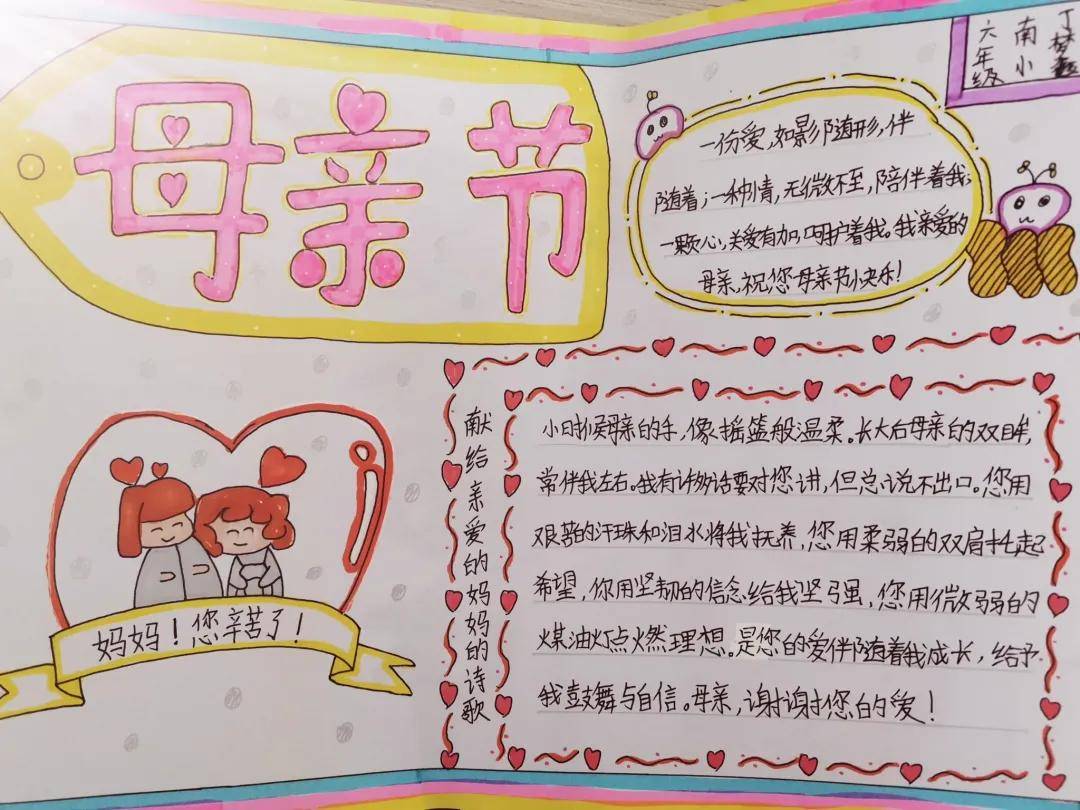 母亲节
六年级
南小
一份爱,如影随形,伴
随着;一种情,无微不至,陪伴着我;
一颗心,关爱有加,呵护着我。我亲爱的
母亲,祝您母亲节快乐!
献给亲爱的妈妈的诗歌
小时候母亲的手,像摇篮般温柔。长大后母亲的双眸,
常伴我左右。我有许多话要对您讲,但总说不出口。您用
艰苦的汗珠和泪水将我抚养,您用柔弱的双肩扛起
希望,你用坚韧的信念给我坚强,您用微弱的
煤油灯点燃理想。是您的爱伴随着我成长,给予
我鼓舞与自信。母亲,谢谢您的爱!
妈妈!您辛苦了!